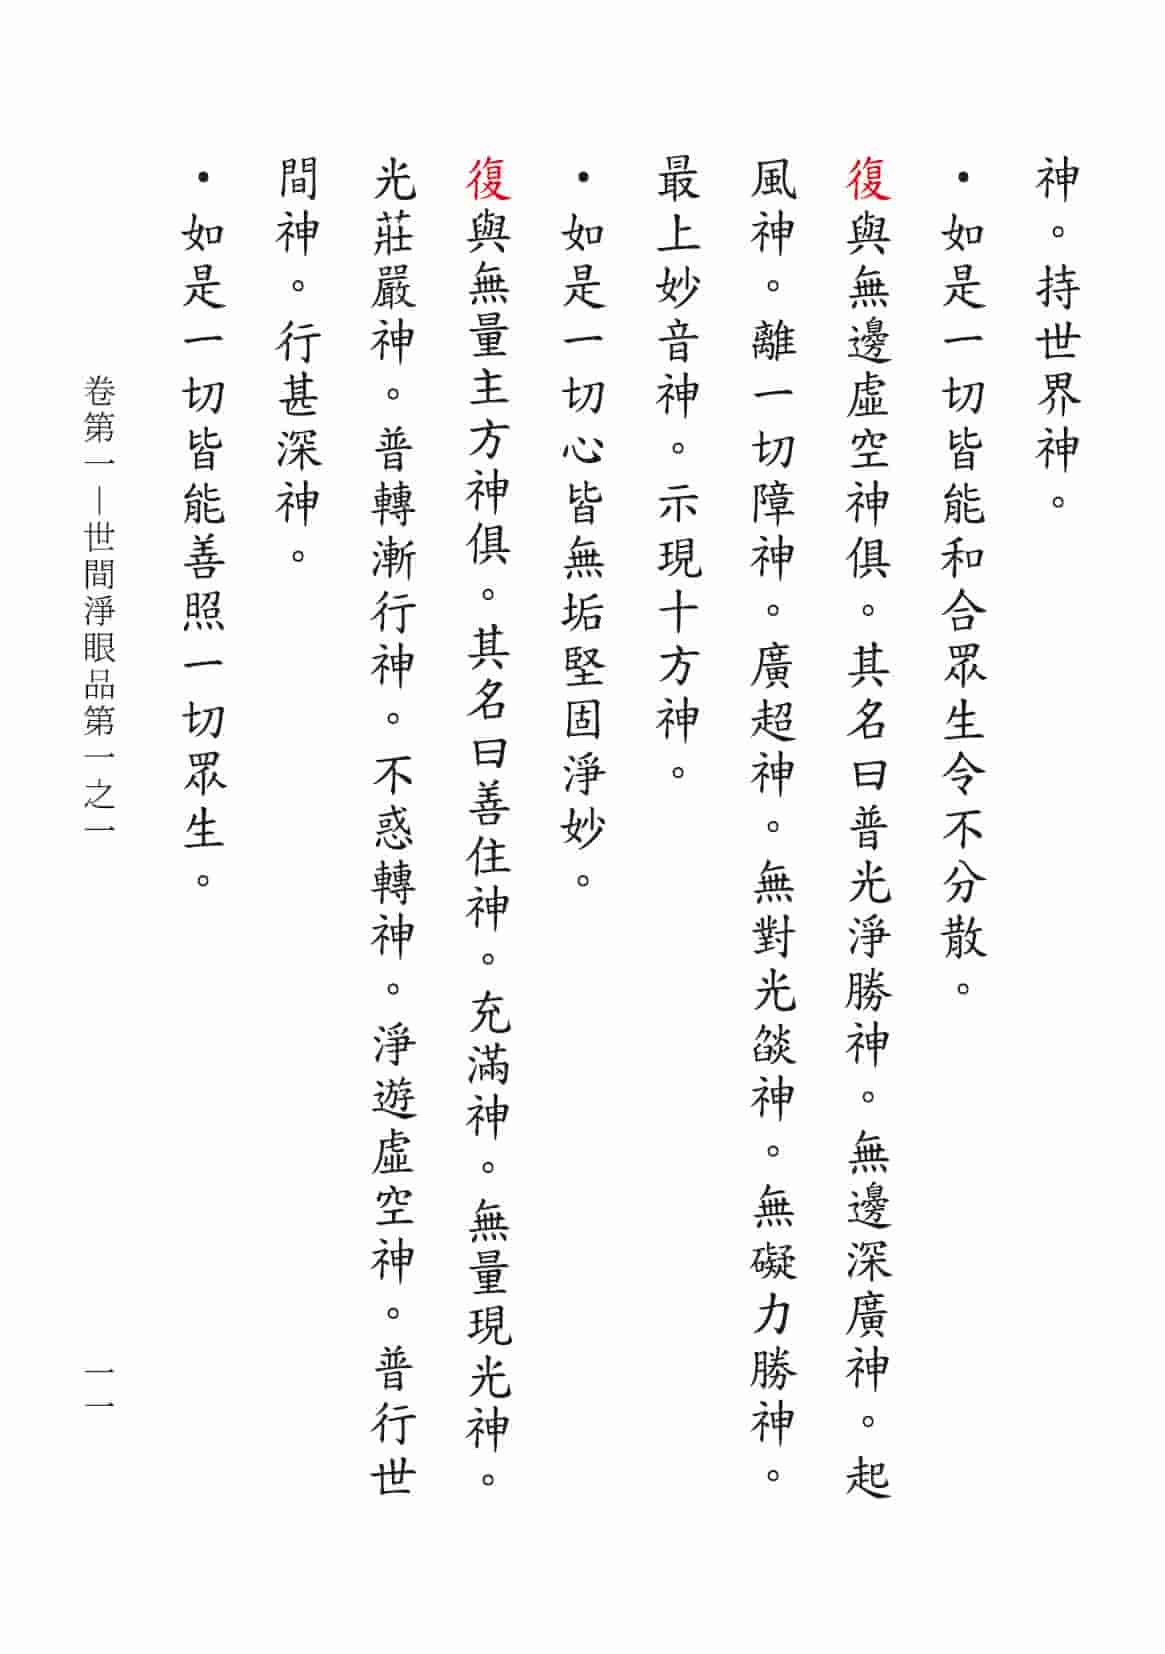 神。持世界神。
•如是一切皆能和合眾生令不分散。
復與無邊虛空神俱。其名曰普光淨勝神。無邊深廣神。起
風神。離一切障神。廣超神。無對光燄神。無礙力勝神。
最上妙音神。示現十方神。
•如是一切心皆無垢堅固淨妙。
復與無量主方神俱。其名曰善住神。充滿神。無量現光神。
光莊嚴神。普轉漸行神。不惑轉神。淨遊虛空神。普行世
間神。行甚深神。
•如是一切皆能善照一切眾生。
卷第一—世間淨眼品第一之一
一一